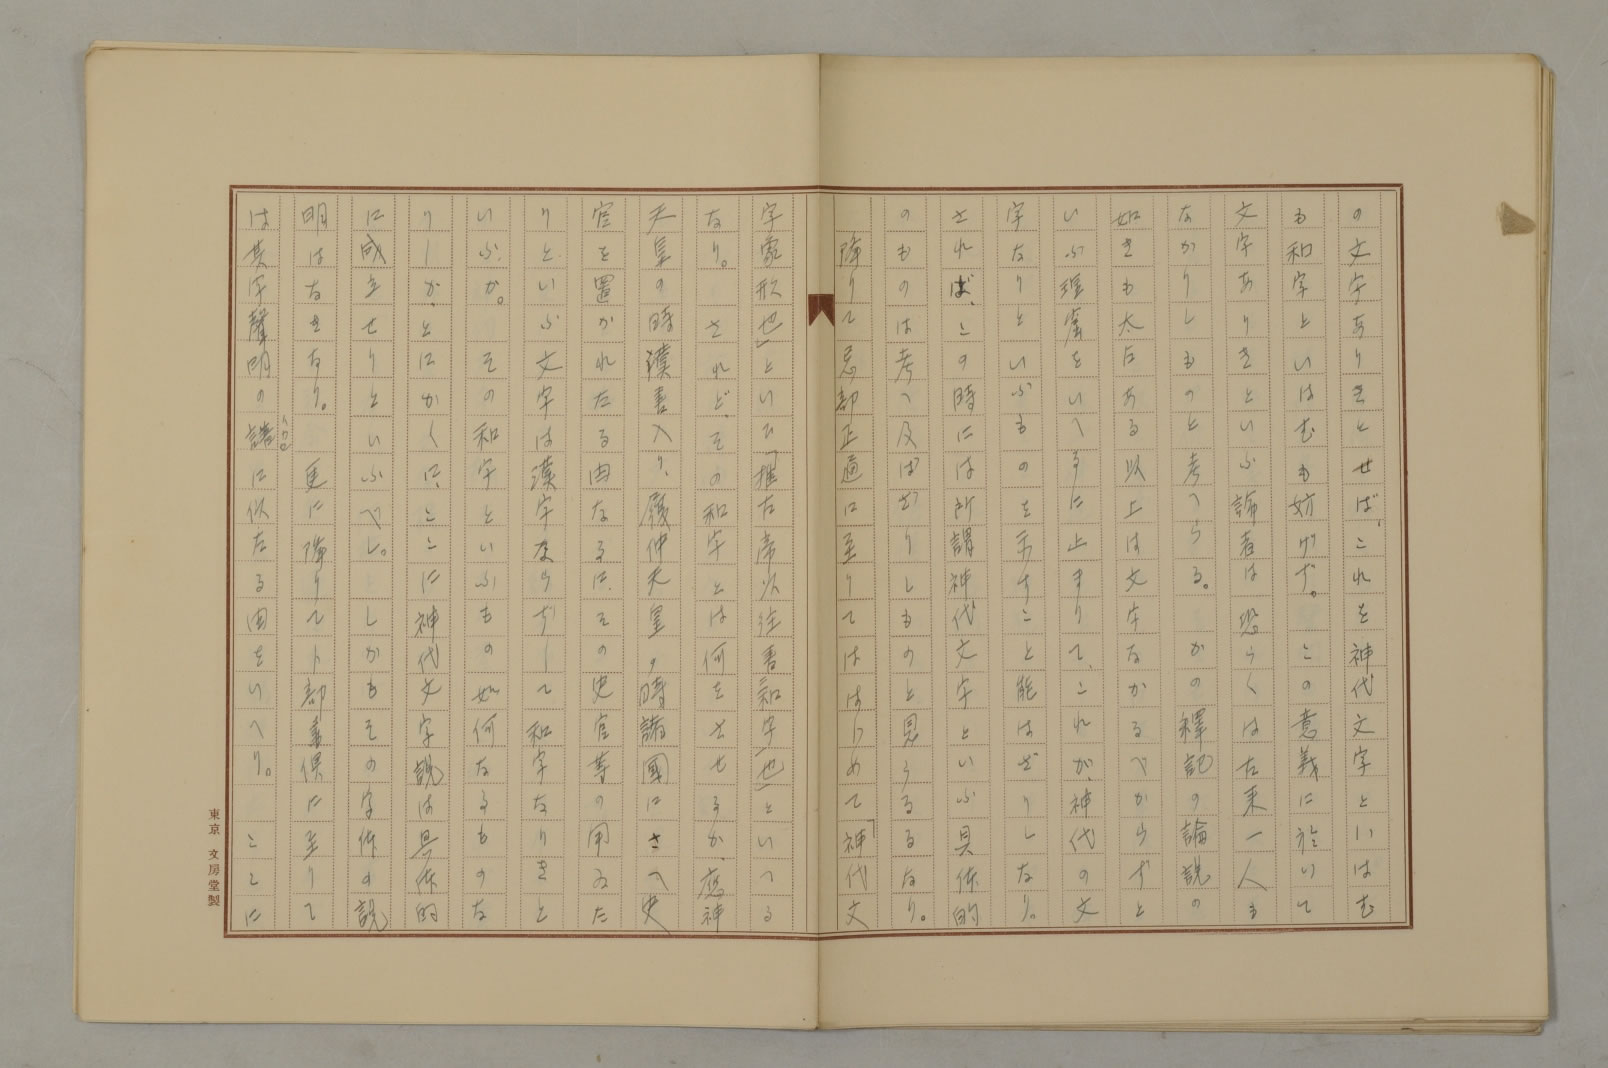 の文字ありきとせば、これを神代文字といはむ
も和字といはむも妨げず。この意義に於いて
文字ありきといふ論者は恐らくは古来一人も
なかりしものと考へらる。かの釋記の論説の
如きも太占ある以上は文字なかるべからずと
いふ理窟をいへるに止まりて、これが神代の文
字なりといふものを示すこと能はざりしなり。
されば、この時には所謂神代文字といふ具体的
のものは考へ及ばざりしものと見らるるなり。
降りて忌部正通に至りてははじめて「神代文
字象形也」といひ「推古帝以往書和字也」といへる
なり。されど、その和字とは何をさせるか、應神
天皇の時漢書入り、履仲天皇ノ時諸國にさへ史
官を置かれたる由なるに、その史官等の用ゐた
りといふ文字は漢字ならずして和字なりきと
いふか。その和字といふものの如何なるものな
りしか、とにかくに、ここに神代文字説は具体的
に成立せりといふべし。しかもその字体の説
明はなきなり。更に降りて卜部兼倶に至りて
は其字聲明の譜に似たる由をいへり。ここに
東京 文房堂製